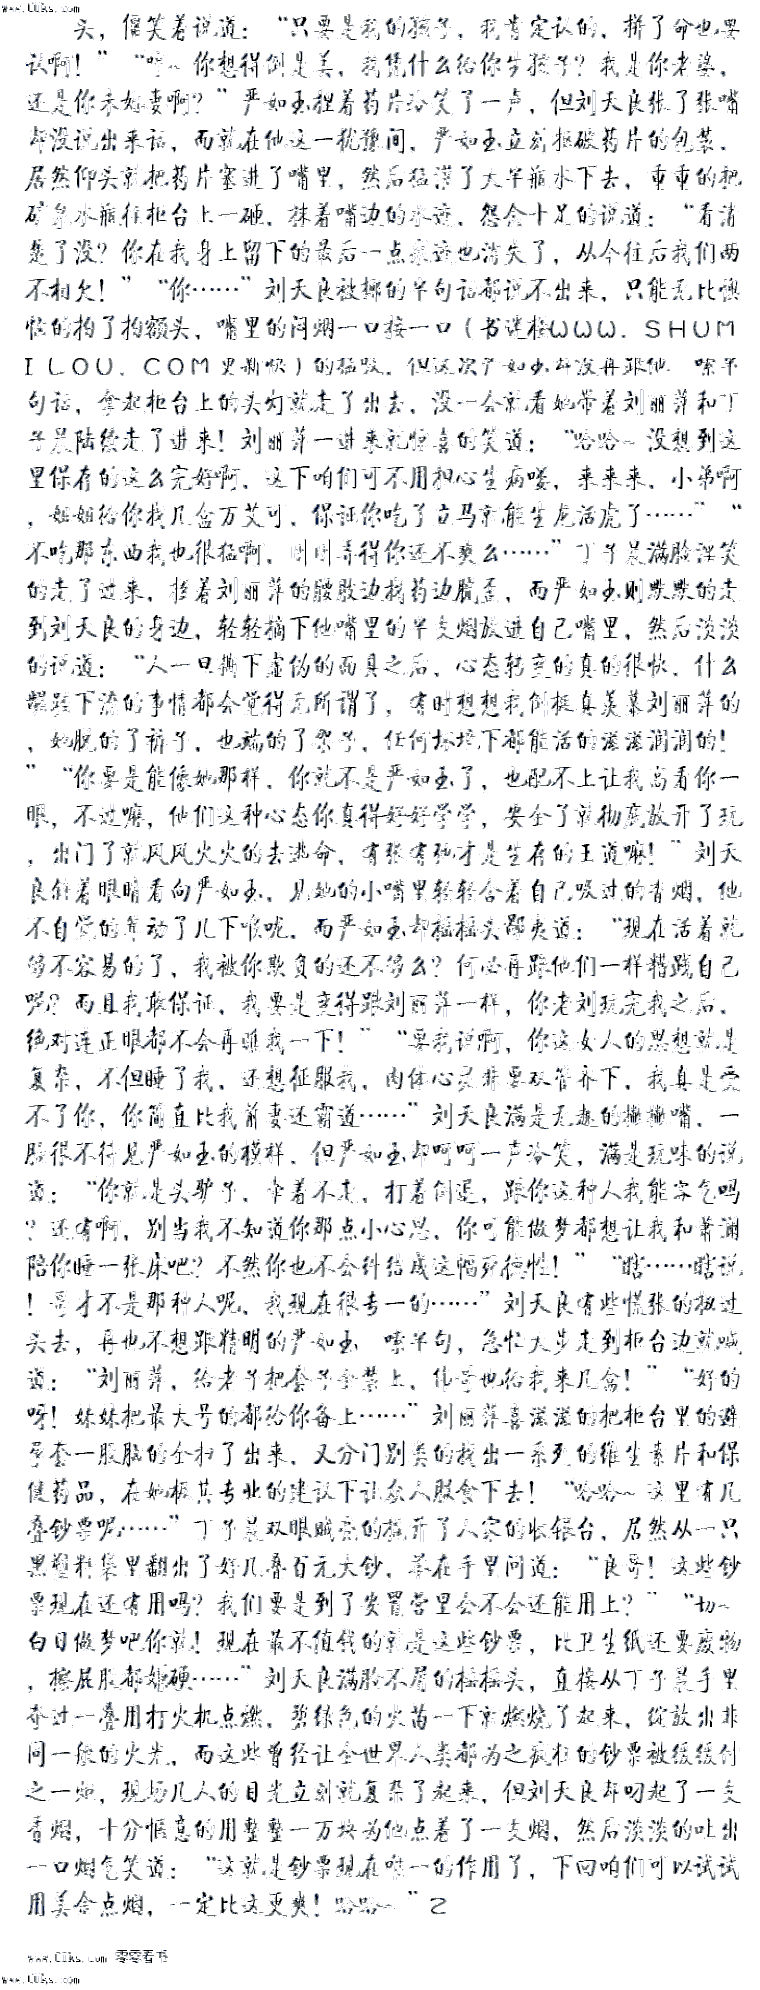 www.00ks.com
头，傻笑着说道：“只要是我的孩子，我肯定认的，拼了命也要
认啊！”“哼~你想得倒是美，我凭什么给你生孩子？我是你老婆，
还是你未婚妻啊？”严如玉捏着药片冷笑了一声，但刘天良张了张嘴
却没说出来话，而就在他这一犹豫间，严如玉立刻抠破药片的包装，
居然仰头就把药片塞进了嘴里，然后猛灌了大半瓶水下去，重重的把
矿泉水瓶往柜台上一砸，抹着嘴边的水迹，怨念十足的说道：“看清
楚了没？你在我身上留下的最后一点痕迹也消失了，从今往后我们两
不相欠！”“你……”刘天良被揶的半句话都说不出来，只能无比懊
恼的拘了拘额头，嘴里的闷烟一口接一口（书迷楼WWW．SHUM
ILOU．COM更新快）的猛吸，但这次严如玉却没再跟他 嗦半
句话，拿起柜台上的头灯就走了出去，没一会就看她带着刘丽萍和丁
子晨陆续走了进来！刘丽萍一进来就惊喜的笑道：“哈哈~没想到这
里保存的这么完好啊，这下咱们可不用担心生病喽，来来来，小弟啊
，姐姐给你找几盒万艾可，保证你吃了立马就能生龙活虎了……”“
不吃那东西我也很猛啊，刚刚弄得你还不爽么……”丁子晨满脸淫笑
的走了过来，搂着刘丽萍的腰肢边找药边腻歪，而严如玉则默默的走
到刘天良的身边，轻轻摘下他嘴里的半支烟放进自己嘴里，然后淡淡
的说道：“人一旦撕下虚伪的面具之后，心态转变的真的很快，什么
龌龊下流的事情都会觉得无所谓了，有时想想我倒挺真羡慕刘丽萍的
，她脱的了裤子，也端的了架子，任何环境下都能活的滋滋润润的！
”“你要是能像她那样，你就不是严如玉了，也配不上让我高看你一
眼，不过嘛，他们这种心态你真得好好学学，安全了就彻底放开了玩
，出门了就风风火火的去逃命，有张有弛才是生存的王道嘛！”刘天
良斜着眼睛看向严如玉，见她的小嘴里轻轻含着自己吸过的香烟，他
不自觉的耸动了几下喉咙，而严如玉却摇摇头鄙夷道：“现在活着就
够不容易的了，我被你欺负的还不够么？何必再跟他们一样糟践自己
呢？而且我敢保证，我要是变得跟刘丽萍一样，你老刘玩完我之后，
绝对连正眼都不会再瞧我一下！”“要我说啊，你这女人的思想就是
复杂，不但睡了我，还想征服我，肉体心灵非要双管齐下，我真是受
不了你，你简直比我前妻还霸道……”刘天良满是无趣的撇撇嘴，一
脸很不待见严如玉的模样，但严如玉却呵呵一声冷笑，满是玩味的说
道：“你就是头驴子，牵着不走，打着倒退，跟你这种人我能客气吗
？还有啊，别当我不知道你那点小心思，你可能做梦都想让我和萧澜
陪你睡一张床吧？不然你也不会纠结成这幅死德性！”“瞎……瞎说
！哥才不是那种人呢，我现在很专一的……”刘天良有些慌张的扭过
头去，再也不想跟精明的严如玉 嗦半句，急忙大步走到柜台边就喊
道：“刘丽萍，给老子把套子全装上，伟哥也给我来几盒！”“好的
呀！妹妹把最大号的都给你备上……”刘丽萍喜滋滋的把柜台里的避
孕套一股脑的全扫了出来，又分门别类的找出一系列的维生素片和保
健药品，在她极其专业的建议下让众人服食下去！“哈哈~这里有几
叠钞票呢……”丁子晨双眼贼亮的撬开了人家的收银台，居然从一只
黑塑料袋里翻出了好几叠百元大钞，举在手里问道：“良哥！这些钞
票现在还有用吗？我们要是到了安置营里会不会还能用上？”“切~
白日做梦吧你就！现在最不值钱的就是这些钞票，比卫生纸还要废物
，擦屁股都嫌硬……”刘天良满脸不屑的摇摇头，直接从丁子晨手里
夺过一叠用打火机点燃，碧绿色的火苗一下就燃烧了起来，绽放出非
同一般的火光，而这些曾经让全世界人类都为之疯狂的钞票被缓缓付
之一炬，现场几人的目光立刻就复杂了起来，但刘天良却叼起了一支
香烟，十分惬意的用整整一万块为他点着了一支烟，然后淡淡的吐出
一口烟气笑道：“这就是钞票现在唯一的作用了，下回咱们可以试试
用美金点烟，一定比这更爽！哈哈~”2
www.00ks.com 零零看书
www.00ks.com